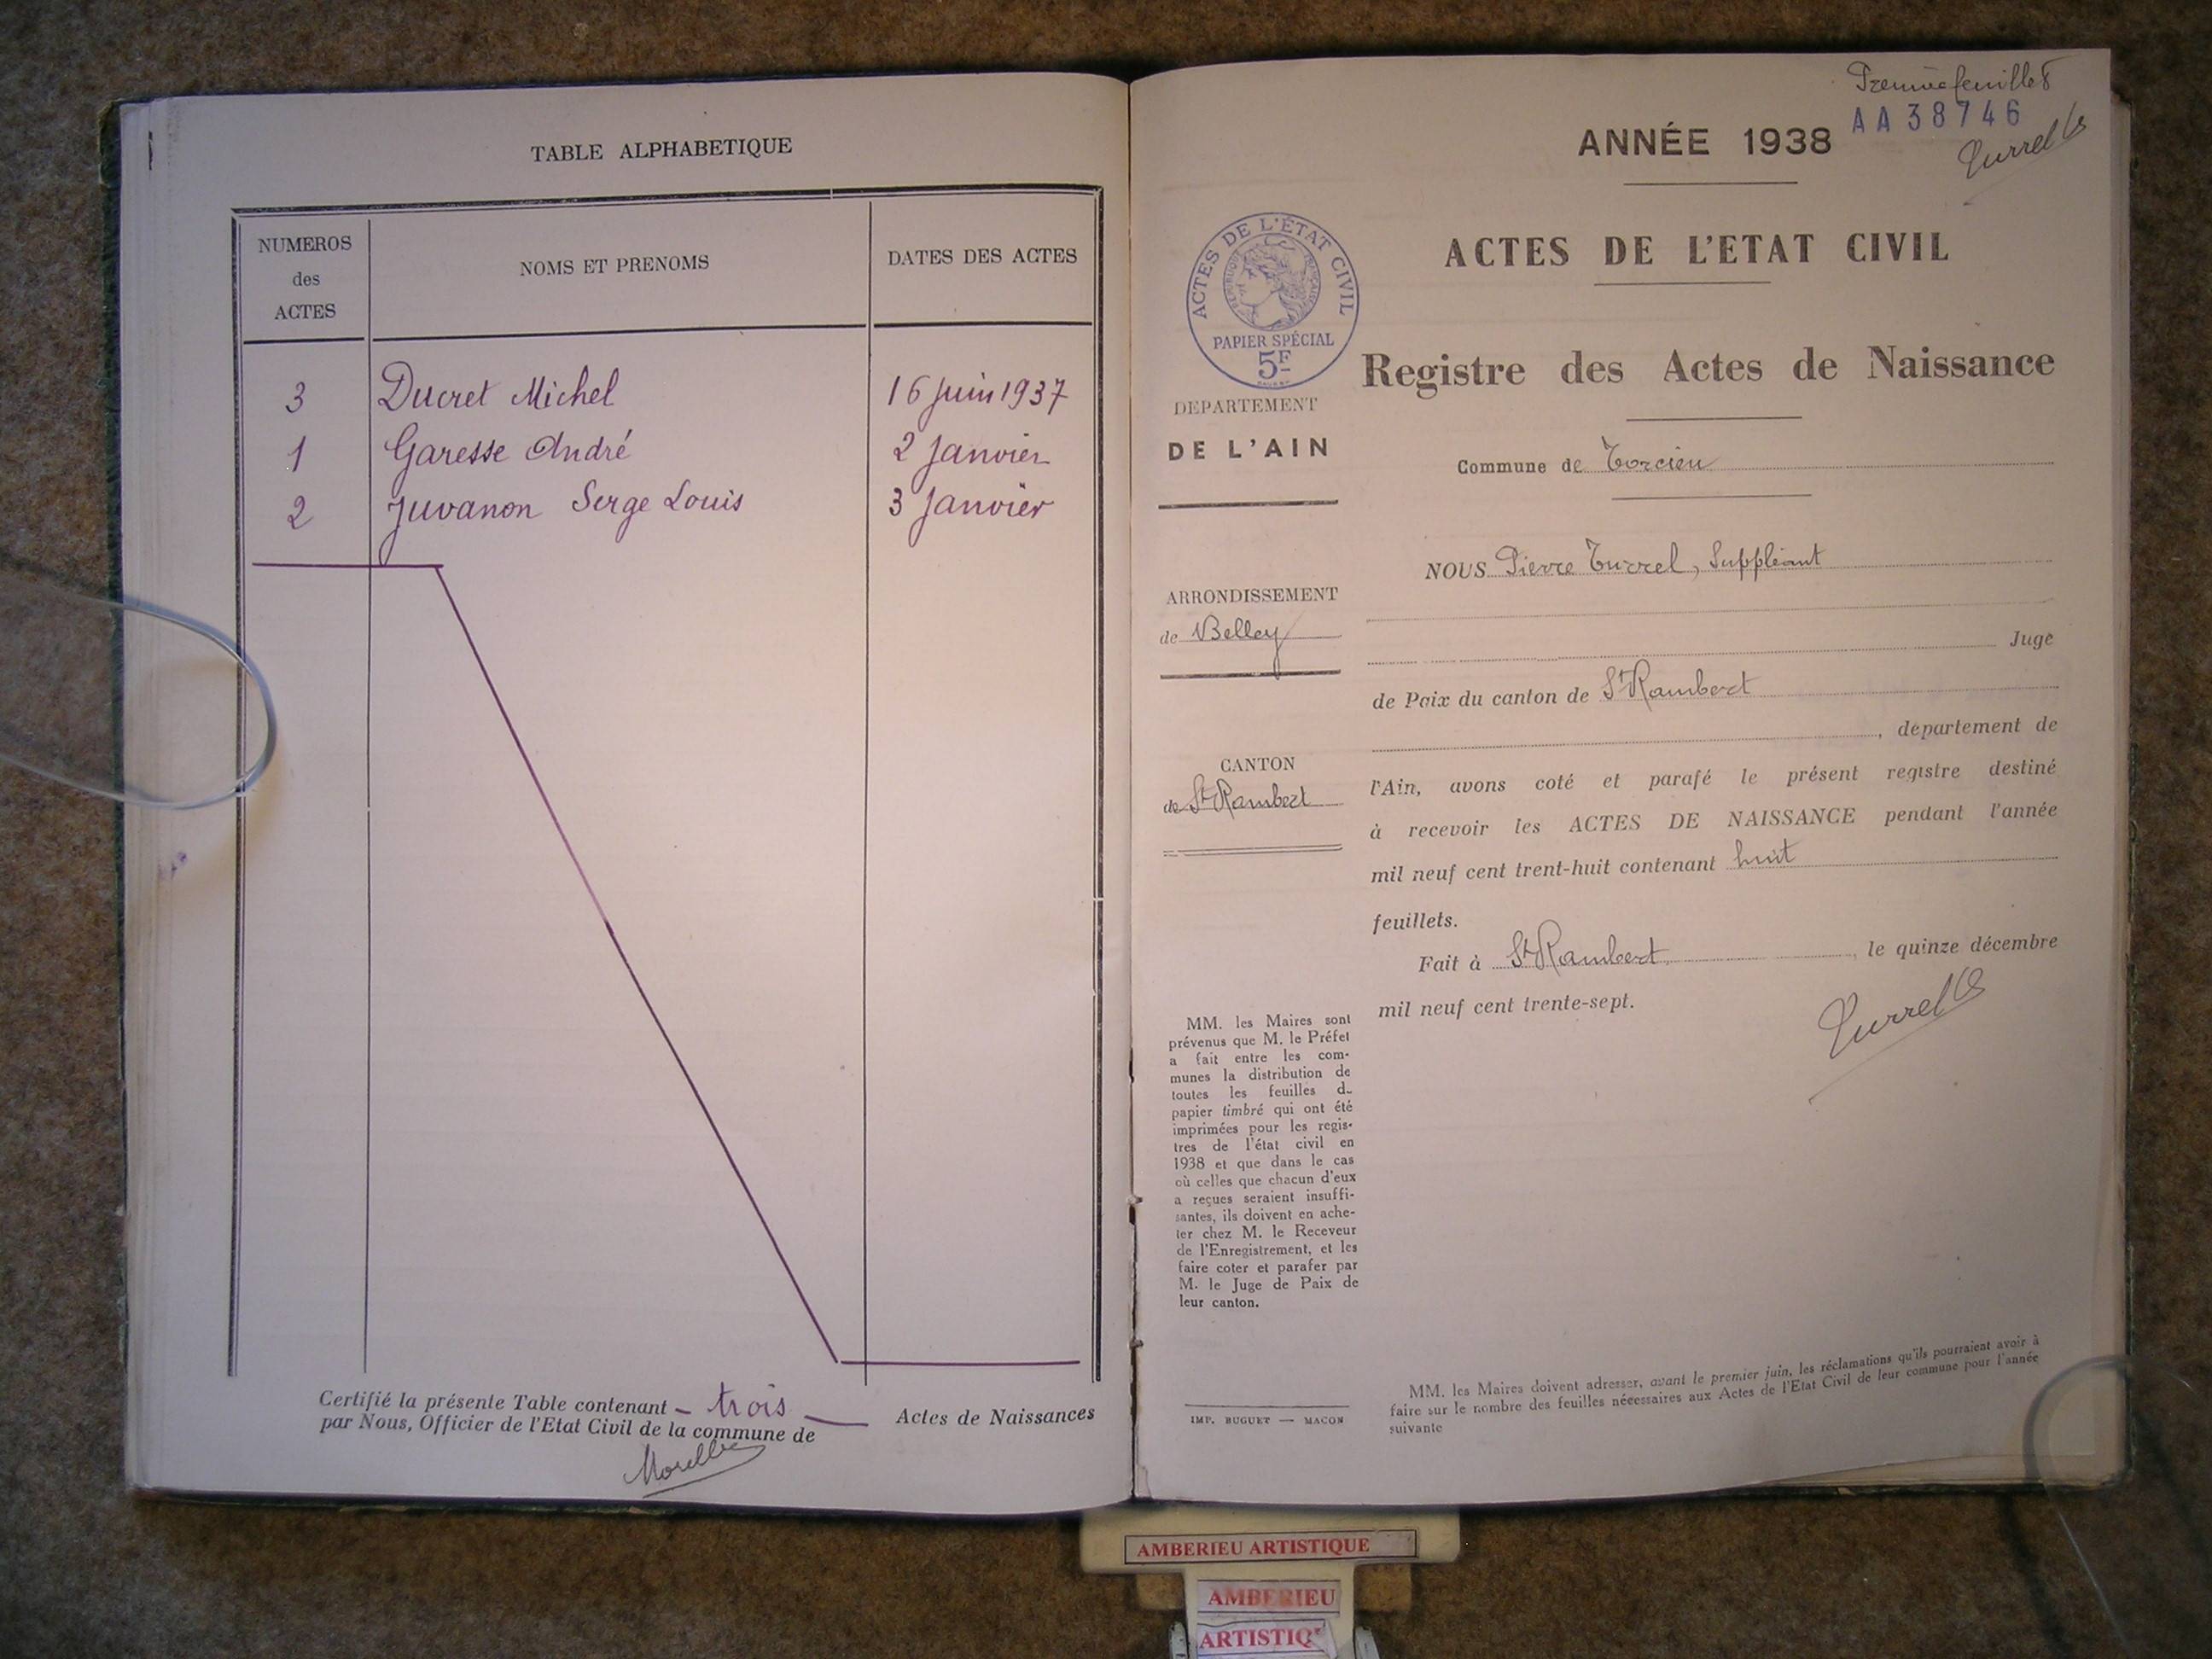 TABLE ALPHABETIQUE
NUMEROS des ACTES
NOMS ET PRENOMS
DATES DES ACTES
3 Ducret Michel 16 Juin 1937
1 Garesse André 2 Janvier
2 Juvanon Serge Louis 3 Janvier
Certifié la présente Table contenant - trois - Actes de Naissances
par Nous, Officier de l'Etat Civil de la commune de
Morel
Premier feuillet
AA38746
Turrel
ANNÉE 1938
ACTES DE L'ÉTAT CIVIL
REPUBLIQUE FRANÇAISE
PAPIER SPÉCIAL
5F
ACTES DE L'ETAT CIVIL
Registre des Actes de Naissance
DEPARTEMENT
DE L'AIN
Commune de Torcieu
ARRONDISSEMENT
de Belley
CANTON
de St Rambert
NOUS Pierre Turrel, Suppléant
Juge
de Paix du canton de St Rambert
, département de
l'Ain, avons coté et parafé le présent registre destiné
à recevoir les ACTES DE NAISSANCE pendant l'année
mil neuf cent trent-huit contenant huit
feuillets.
Fait à St Rambert, le quinze décembre
mil neuf cent trente-sept.
Turrel
MM. les Maires sont
prévenus que M. le Préfet
a fait entre les com-
munes la distribution de
toutes les feuilles d_
papier timbré qui ont été
imprimées pour les regis-
tres de l'état civil en
1938 et que dans le cas
où celles que chacun d'eux
a reçues seraient insuffi-
santes, ils doivent en ache-
ter chez M. le Receveur
de l'Enregistrement, et les
faire coter et parafer par
M. le Juge de Paix de
leur canton.
IMP. BUGUET — MACON
MM. les Maires doivent adresser, avant le premier juin, les réclamations qu'ils pourraient avoir à
faire sur le nombre des feuilles nécessaires aux Actes de l'Etat Civil de leur commune pour l'année
suivante
AMBERIEU ARTISTIQUE
AMBERIEU
ARTISTIQ